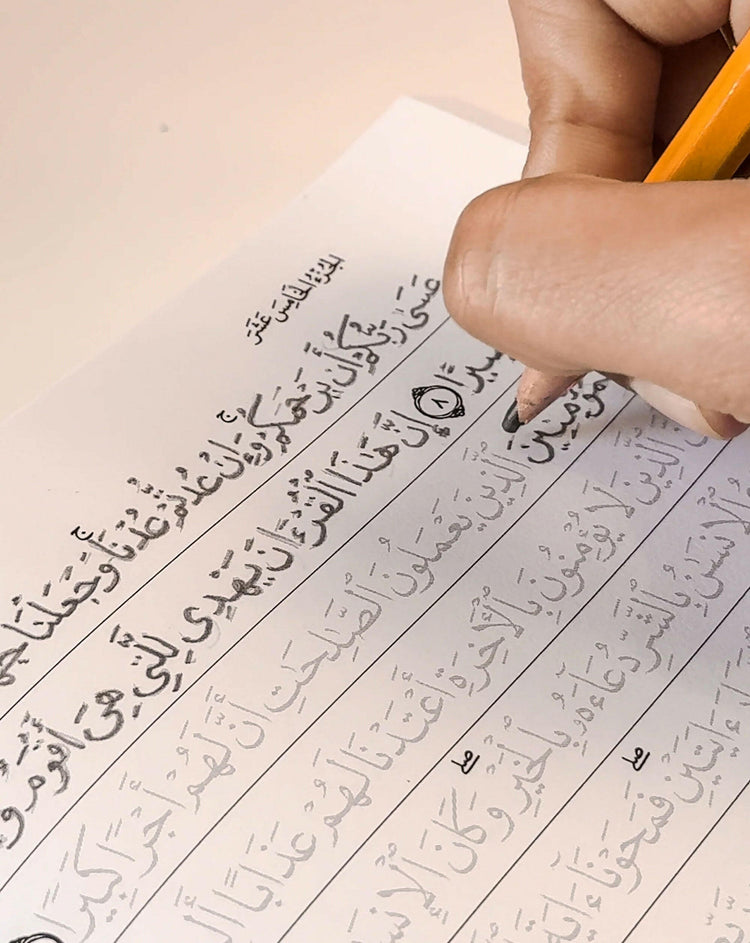 الجُزءُ الخَامِسَ عَشَرَ
عَسَىٰ رَبُّكُمْ أَن يَرْحَمَكُمْ ۚ وَإِنْ عُدتُّمْ عُدْنَا ۚ وَجَعَلْنَا
٨ إِنَّ هَٰذَا ٱلْقُرْءَانَ يَهْدِى لِلَّتِى هِىَ أَقْوَمُ وَ
مُؤْمِنِينَ ٱلَّذِينَ يَعْمَلُونَ ٱلصَّٰلِحَٰتِ أَنَّ لَهُمْ أَجْرًا كَبِيرًا
ٱلَّذِينَ لَا يُؤْمِنُونَ بِٱلْءَاخِرَةِ أَعْتَدْنَا لَهُمْ عَذَابًا
ٱلْإِنسَٰنُ بِٱلشَّرِّ دُعَآءَهُۥ بِٱلْخَيْرِ ۖ وَكَانَ ٱلْإِنسَ
ءَايَتَيْنِ ۖ فَمَحَوْنَآ ءَايَةَ